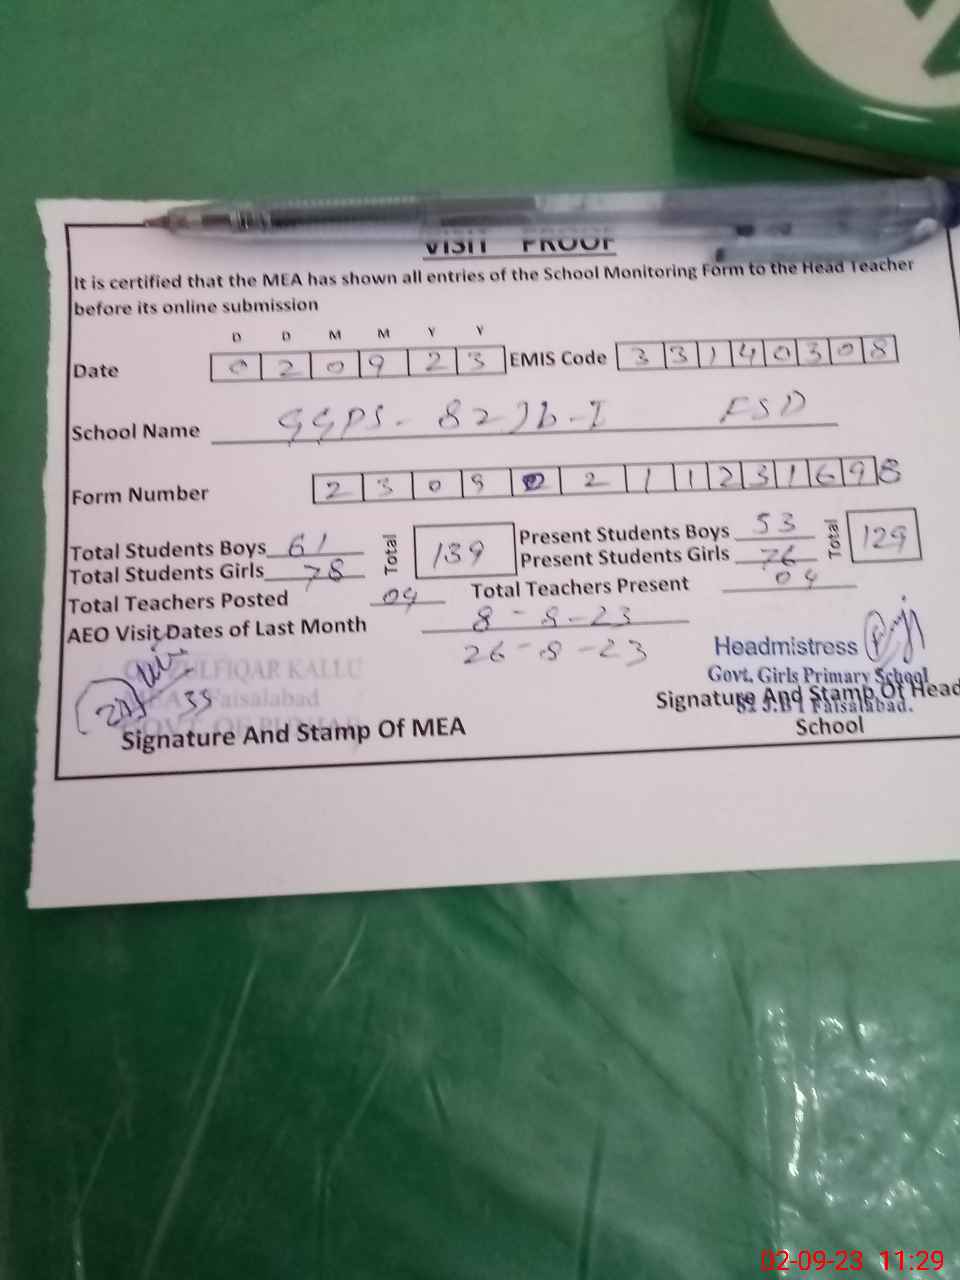 VISIT PROOF
It is certified that the MEA has shown all entries of the School Monitoring Form to the Head Teacher
before its online submission
D D M M Y Y
Date 0 2 0 9 2 3 EMIS Code 3 3 1 4 0 3 0 8
School Name GGPS - 82 Jb - I FSD
Form Number 2 3 0 9 0 2 1 1 2 3 1 6 9 8
Total Students Boys 61 Total 139 Present Students Boys 53 Total 129
Total Students Girls 78 Present Students Girls 76
Total Teachers Posted 04 Total Teachers Present 04
AEO Visit Dates of Last Month 8-8-23
26-8-23
ZULFIQAR KALLU
Faisalabad
Headmistress
Govt. Girls Primary School
82 J.B I Faisalabad.
Signature And Stamp Of MEA
Signature And Stamp Of Head
School
02-09-23 11:29